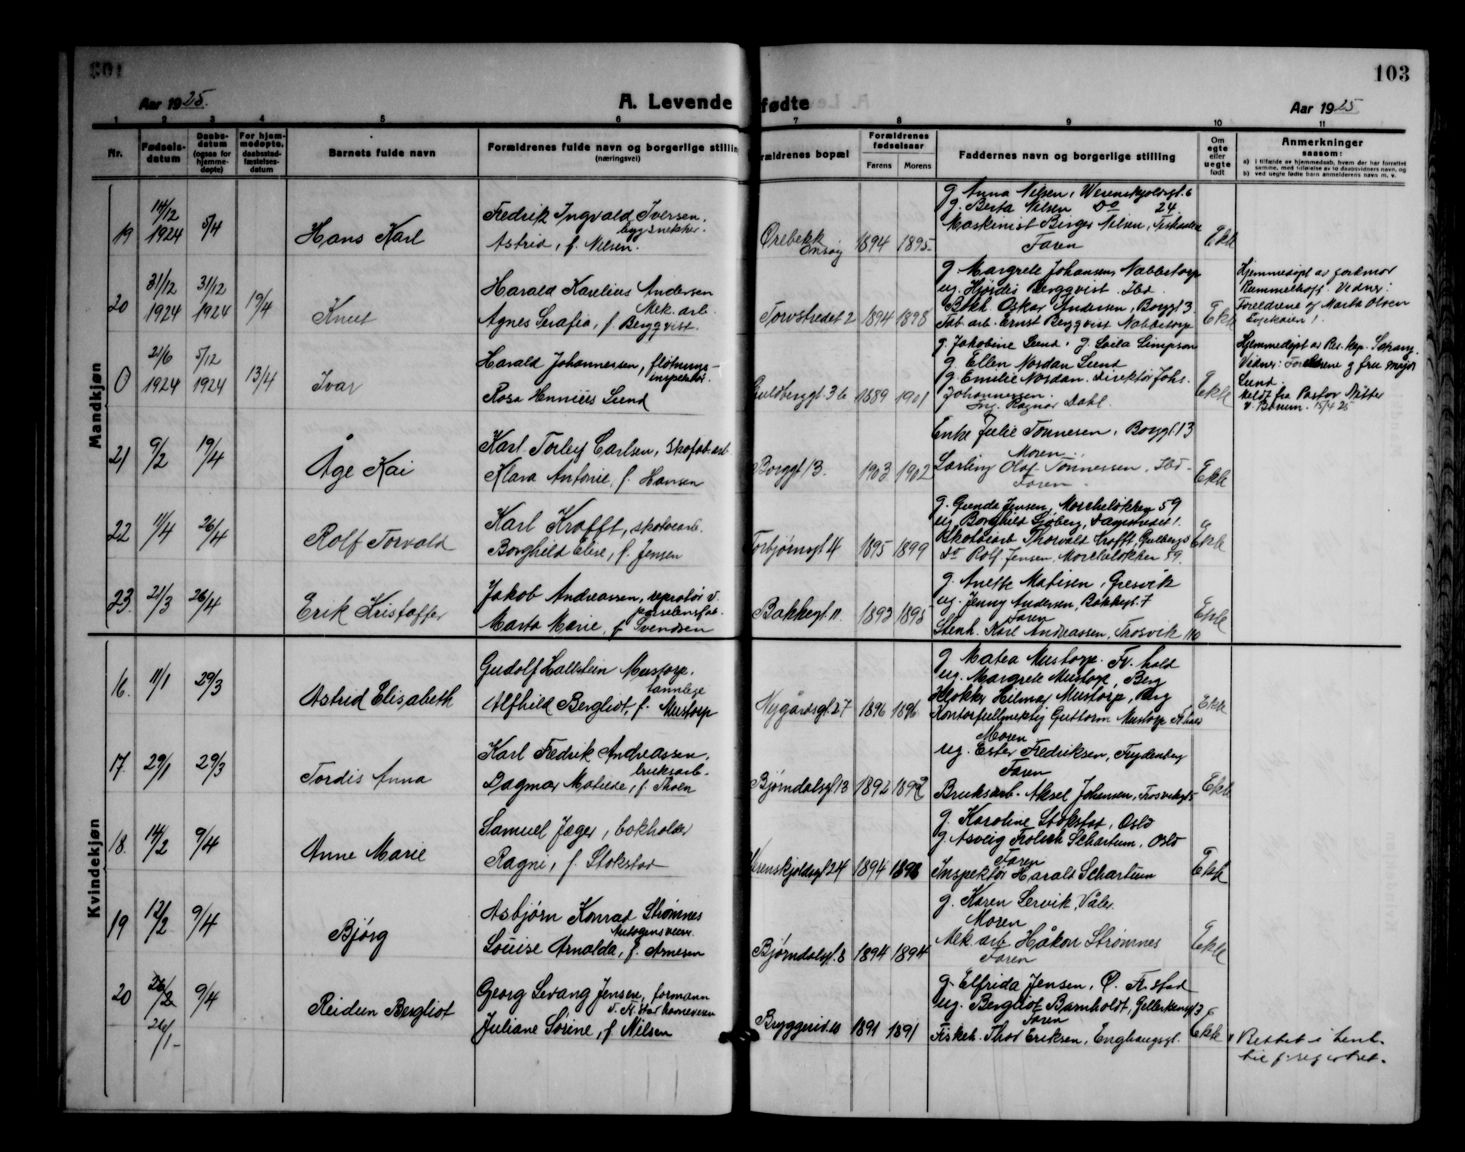 103
Aar 1925.
A. Levende fødte
Aar 1925
1 2 3 4 5 6 7 8 9 10 11
Nr.
Fødselsdatum
Daabsdatum (ogsaa for hjemmedøpte)
For hjemmedøpte, daabsstadfæstelsesdatum
Barnets fulde navn
Forældrenes fulde navn og borgerlige stilling (næringsvei)
Forældrenes bopæl
Forældrenes fødselsaar
Farens Morens
Faddernes navn og borgerlige stilling
Om egte eller uegte født
Anmerkninger saasom:
Mandkjøn
19 14/12 1924 5/4 Hans Karl
Fredrik Ingvald Iversen, bygsnekker.
Astrid, f. Nilsen.
Ørebekk Onsøy 1894 1895
g. Anna Nilsen, Werenskjoldsgt. 6
g. Berta Nilsen Do 24
Maskinist Birger Nilsen,
Faren
Ekte
20 31/12 1924 31/12 1924 19/4 Knut
Harald Karelius Andersen Mek. arb.
Agnes Serafia, f. Bergqvist.
Torvstredet 2 1894 1898
g. Margrete Johansen, Nabbetorp
ug. Hjørdis Bergqvist. Ibd.
Bokh. Oskar Andersen, Borggt 3.
Fab. arb. Ernst Bergqvist Nabbetorp
Ekte
Hjemmedøpt av jordmor
Rummelhoff. Vidner:
Foreldrene og Marta Olsen
0 21/6 1924 5/12 1924 13/4 Ivar
Harald Johannessen, fløtningsinspektør.
Rosa Ennicis Lund
Guldbergt. 36 1889 1901
g. Jakobine Lund, g. Laila Simpson
g. Ellen Nordan Lund
g. Emilie Nordan. Direktør Johs.
Johannessen.
Ing. Ragnar Dahl.
Ekte
Hjemmedøpt av Res. kap.
Vidner: Foreldrene og fru major
Lund.
Meldt fra Pastor
v. Bærum. 15/4 25
21 9/2 19/4 Åge Kai
Karl Torleif Carlsen, skofab. arb.
Klara Antonie, f. Hansen
Borggt 13. 1903 1902
Enke Julie Tønnesen, Borggt. 13
Moren
Lærling Olaf Tønnessen, Ibd.
Faren
Ekte
22 11/4 26/4 Rolf Torvald
Karl Krofft, skotøiarb.
Borghild Elise, f. Jensen
Torbjørnsgt. 4 1895 1899
g. Gunda Jensen, Mosseløkken 59
ug. Borghild Sjøberg,
Skotøiarb. Thorvald Croft,
Do Rolf Jensen, Mosseløkken 59.
Ekte
23. 21/3 26/4 Erik Kristoffer
Jakob Andreassen, reparatør v. porselensfab.
Marta Marie, f. Svendsen
Bakkegt 11. 1893 1895
g. Anette Matisen, Gresvik
ug. Jenny Andersen, Bakkegt. 7
Faren
Stenh. Karl Andreassen, Trosvik 110
Ekte
Kvindekjøn
16. 11/1 29/3 Astrid Elisabeth
Gudolf Hallstein Mustorp. tannlege
Alfhild Bergliot, f. Mustorp
Nygårdsgt 27 1896 1896
g. Matea Mustorp. Fr. hald
ug. Margrete Mustorp, Berg
Klokker Hilmar Mustorp, Berg
Kontorfullmektig Guttorm Mustorp Fr. hald
Ekte
17. 29/1 29/3 Tordis Anna
Karl Fredrik Andreassen, bruksarb.
Dagmar Matilde, f. Thoen
Bjørndalsgt 13 1892 1892
Moren
ug. Ester Fredriksen, Frydenberg
Faren
Bruksarb. Aksel Johansen, Trosvikgt 5
Ekte
18. 14/2 9/4 Anne Marie
Samuel Jæger, bokholder
Ragni, f. Stokstad
Werenskjoldsgt 24 1894 1898
g. Karoline Stokstad, Oslo
g. Schartum, Oslo
Faren
Inspektør Harald Schartum
Ekte
19 12/2 9/4 Bjørg
Asbjørn Konrad Strømnes
Louise Arnalda, f. Arnesen
Bjørndalsgt. 8 1894 1894
g. Karen Lervik, Våler.
Moren
Mek. arb. Håkon Strømnes
Faren
Ekte
20 26/2 9/4 Reidun Bergliot
26/1
Georg Levang Jensen, formann
Juliane Sørine, f. Nilsen
Bryggerid. 10 1891 1891
g. Elfrida Jensen, Ø. Fr. stad
ug. Bergliot Barnholdt, 3
Faren
Fiskeh. Thor Eriksen, Enghaugsgt.
Ekte
Rettet i hent. til